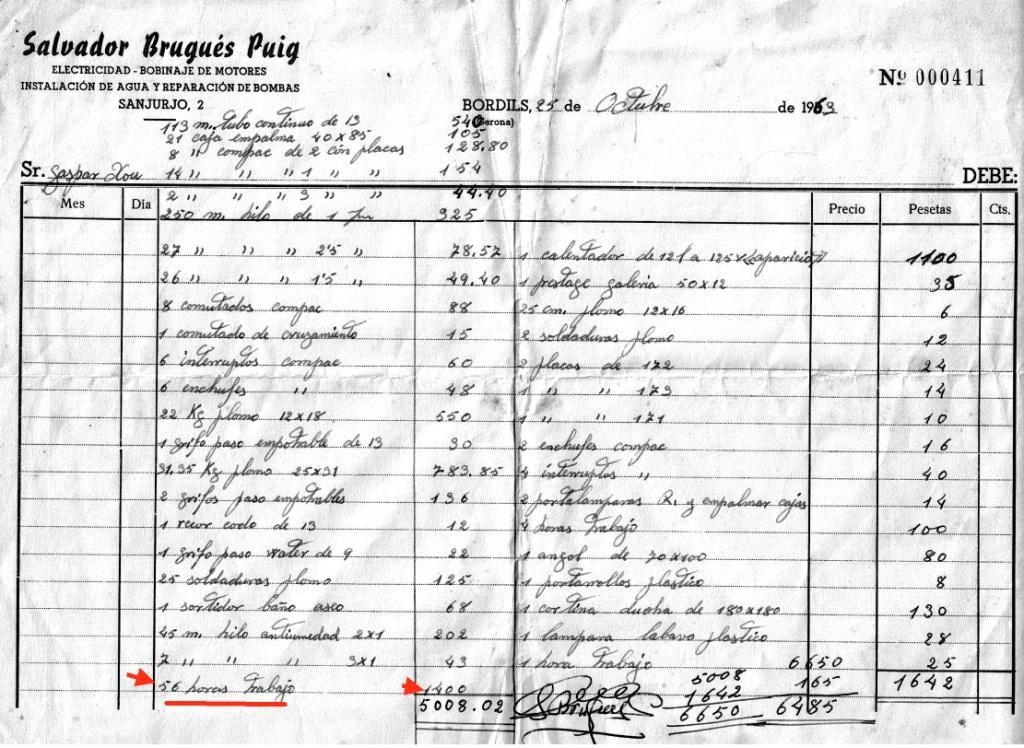 Salvador Brugués Puig
ELECTRICIDAD - BOBINAJE DE MOTORES
INSTALACIÓN DE AGUA Y REPARACIÓN DE BOMBAS
SANJURJO, 2
Nº 000411
BORDILS, 25 de Octubre de 1963
(Gerona)
113 m. tubo continuo de 13 540
21 caja empalma 40x85 105
8 " compac de 2 con placas 128.80
Sr. Gaspar Xou 14 " " " 1 " " 154 DEBE:
2 " " " 3 " " 44.40
Mes Día Precio Pesetas Cts.
250 m. hilo de 1 325
27 " " " 2'5 " 78.57 1 calentador de 121 a 125 v (aparicio) 1100
26 " " " 1'5 " 49.40 1 prestage galeria 50x12 35
8 comutados compac 88 25 cm. plomo 12x16 6
1 comutado de cruzamiento 15 2 soldaduras plomo 12
6 interruptos compac 60 2 placas de 172 24
6 enchufes " 48 1 " " 173 14
22 Kg plomo 12x18 550 1 " " 171 10
1 grifo paso empotrable de 13 30 2 enchufes compac 16
31.35 Kg plomo 25x31 783.85 4 interruptos " 40
2 grifos paso empotrables 136 2 portalamparas R. y empalmar cajas 14
1 recor codo de 13 12 4 horas trabajo 100
1 grifo paso water de 9 22 1 angol de 70x100 80
25 soldaduras plomo 125 1 portarrollos plastico 8
1 sortidor baño aseo 68 1 cortina ducha de 180x180 130
45 m. hilo antiumedad 2x1 202 1 lampara labavo plastico 28
7 " " " 3x1 43 1 hora trabajo 6650 25
56 horas trabajo 1400 5008 165 1642
5008.02 1642 6485
6650